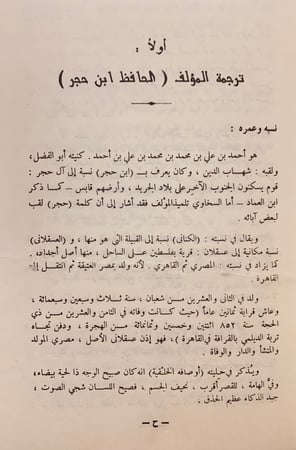 أولاً :
ترجمة المؤلف ( الحافظ ابن حجر )
نسبه وعمره :
هو أحمد بن علي بن محمد بن محمد بن علي بن أحمد . كنيته أبو الفضل،
ولقبه : شهاب الدين ، وكان يعرف بـ (ابن حجر) نسبة إلى آل حجر :
قوم يسكنون الجنوب الآخر على بلاد الجريد ، وأرضهم قابس – كما ذكر
ابن العماد – أما السخاوي تلميذ المؤلف فقد أشار إلى أن كلمة (حجر) لقب
لبعض آبائه .
ويقال في نسبته : (الكناني) نسبة إلى القبيلة التي هو منها ، و (العسقلاني)
نسبة مكانية إلى عسقلان : قرية بفلسطين على الساحل ، منها أصل أجداده .
كما يزاد في نسبته : المصري ثم القاهري . لأنه ولد بمصر العتيقة ثم انتقل إلى
القاهرة .
ولد في الثاني والعشرين من شعبان ، سنة ثلاث وسبعين وسبعمائة ،
وعاش قرابة ثمانين عاماً (حيث كانت وفاته في الثامن والعشرين من ذي
الحجة سنة ٨٥٢ اثنتين وخمسين وثمانمائة من الهجرة ، ودفن تجاه
تربة الديلمي بالقرافة في القاهرة ) ، فهو إذن عسقلاني الأصل ، مصري المولد
والمنشأ والدار والوفاة .
ويذكر في حليته (أوصافه الخلقية) انه كان صبيح الوجه ذا لحية بيضاء،
وفي الهامة ، للقصر أقرب ، نحيف الجسم ، فصيح اللسان شجي الصوت ،
جيد الذكاء عظيم الحذق .
– ح –